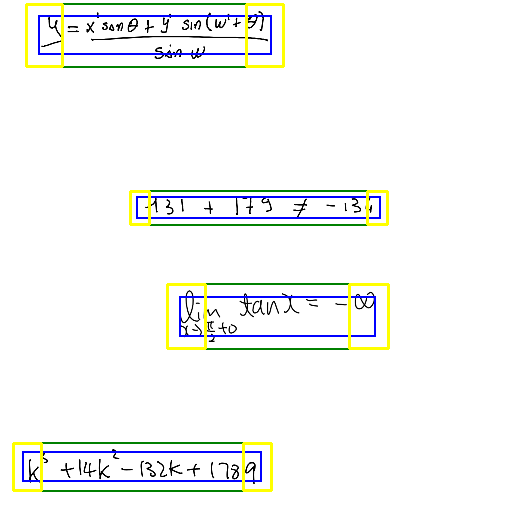 y = \frac{x' sin θ + y' sin(w' + θ)}{sin w}
-931 + 179 ≠ -134
\lim_{x→\frac{π}{2}+0} tan x = -∞
k³ + 14k² - 132k + 1789